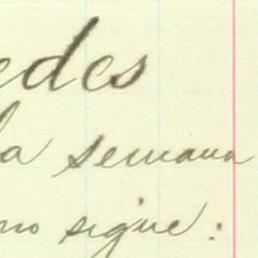 edes
la semana
mo sigue: